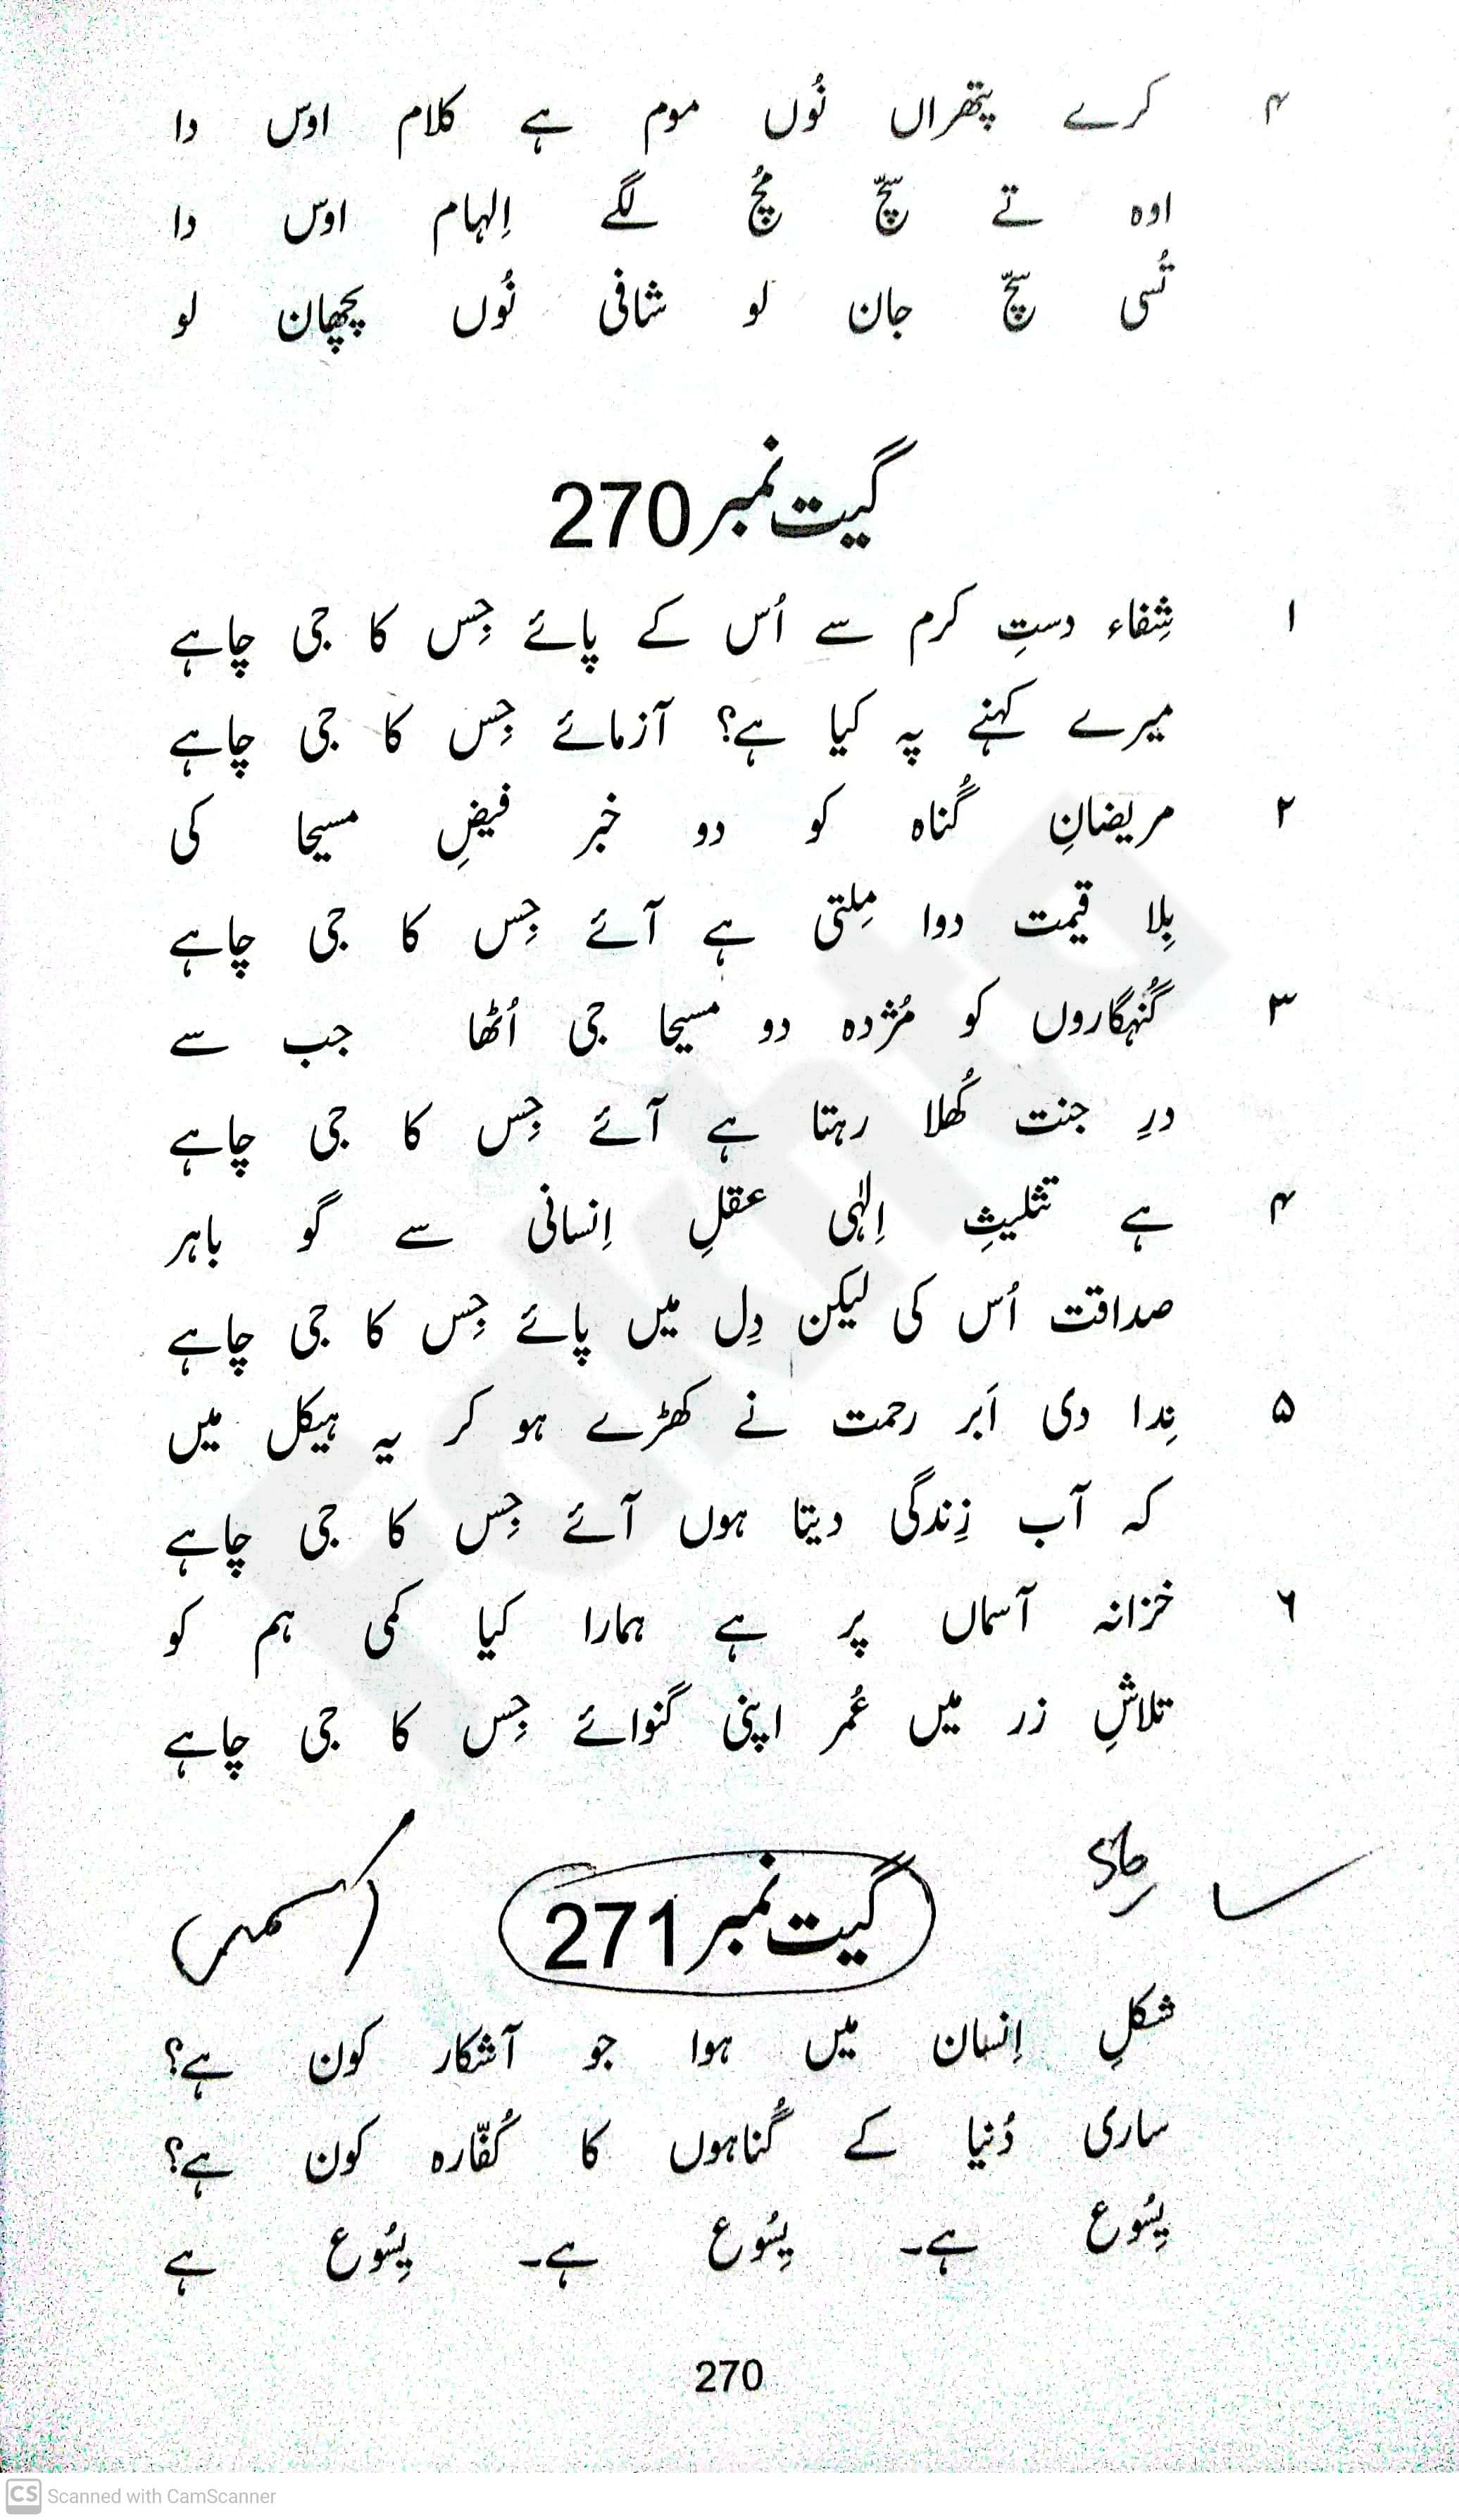 ۴ کرے پتھراں نُوں موم ہے کلام اوس دا
اوہ تے سچّ مُچ لگے اِلہام اوس دا
تُسی سچّ جان لو شافی نُوں پچھان لو
گیت نمبر 270
۱ شِفاء دستِ کرم سے اُس کے پائے جِس کا جی چاہے
میرے کہنے پہ کیا ہے؟ آزمائے جِس کا جی چاہے
۲ مریضانِ گُناہ کو دو خبر فیضِ مسیحا کی
بِلا قیمت دوا مِلتی ہے آئے جِس کا جی چاہے
۳ گُنہگاروں کو مُژدہ دو مسیحا جی اُٹھا جب سے
درِ جنت کُھلا رہتا ہے آئے جِس کا جی چاہے
۴ ہے تثلیثِ اِلٰہی عقلِ اِنسانی سے گو باہر
صداقت اُس کی لیکن دِل میں پائے جِس کا جی چاہے
۵ نِدا دی اَبر رحمت نے کھڑے ہو کر یہ ہیکل میں
کہ آب زِندگی دیتا ہوں آئے جِس کا جی چاہے
۶ خزانہ آسماں پر ہے ہمارا کیا کمی ہم کو
تلاشِ زر میں عُمر اپنی گنوائے جِس کا جی چاہے
گیت نمبر 271
شکلِ اِنسان میں ہوا جو آشکار کون ہے؟
ساری دُنیا کے گُناہوں کا کُفّارہ کون ہے؟
یِسُوع ہے۔ یِسُوع ہے۔ یِسُوع ہے
270
CS Scanned with CamScanner